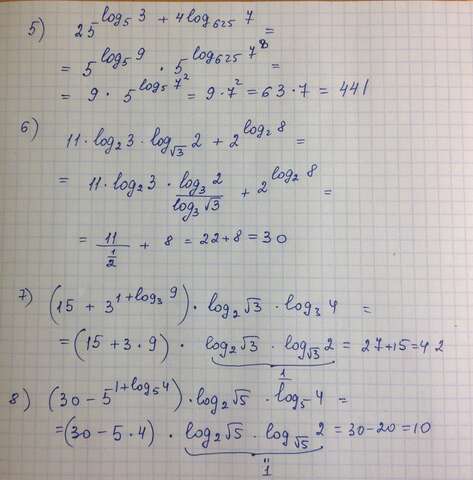 5) 25^{log_5 3 + 4 log_{625} 7} =
= 5^{log_5 9} · 5^{log_{625} 7^8} =
= 9 · 5^{log_5 7^2} = 9 · 7^2 = 63 · 7 = 441
6) 11 · log_2 3 · log_{√3} 2 + 2^{log_2 8} =
= 11 · log_2 3 · \frac{log_3 2}{log_3 √3} + 2^{log_2 8} =
= \frac{11}{\frac{1}{2}} + 8 = 22 + 8 = 30
7) (15 + 3^{1 + log_3 9}) · log_2 √3 · log_3 4 =
= (15 + 3 · 9) · log_2 √3 · log_{√3} 2 = 27 + 15 = 42
1
8) (30 - 5^{1 + log_5 4}) · log_2 √5 · log_5 4 =
= (30 - 5 · 4) · log_2 √5 · log_{√5} 2 = 30 - 20 = 10
"
1